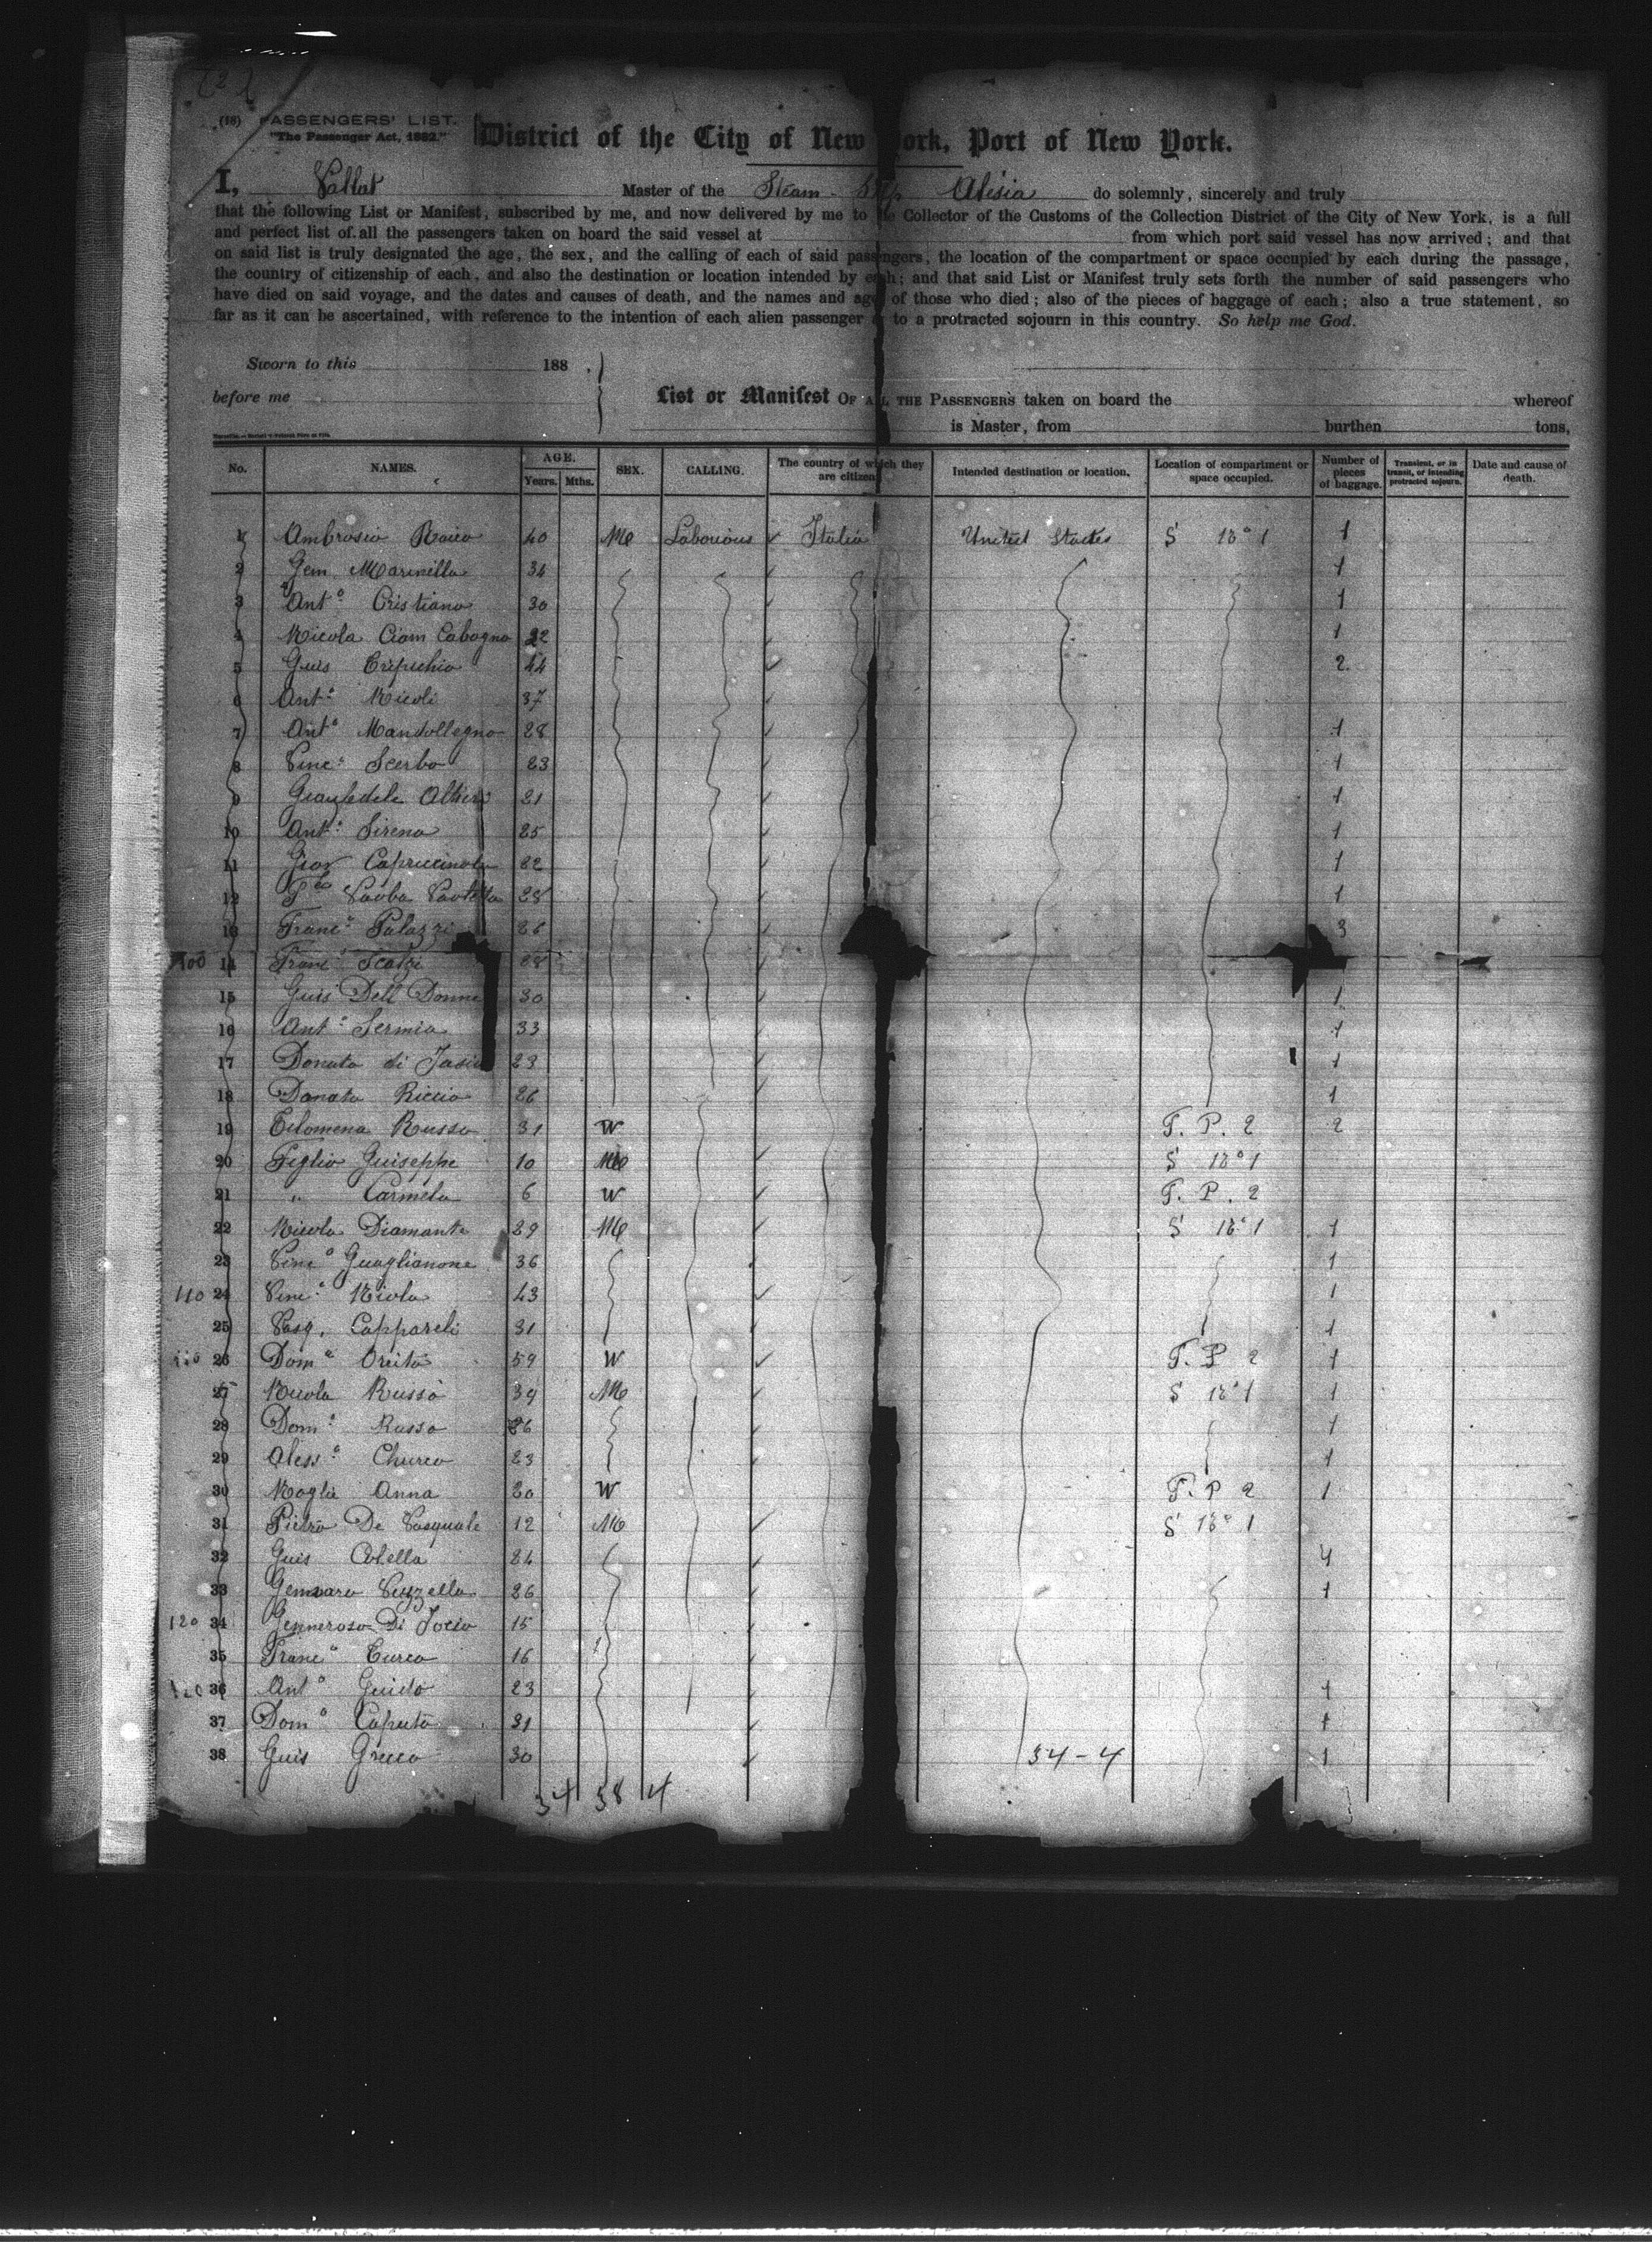 (18) PASSENGERS' LIST.
"The Passenger Act, 1882."
District of the City of New York, Port of New York.
I, Vallat Master of the Steam-Ship Alésia do solemnly, sincerely and truly
that the following List or Manifest, subscribed by me, and now delivered by me to the Collector of the Customs of the Collection District of the City of New York, is a full
and perfect list of all the passengers taken on board the said vessel at from which port said vessel has now arrived; and that
on said list is truly designated the age, the sex, and the calling of each of said passengers, the location of the compartment or space occupied by each during the passage,
the country of citizenship of each, and also the destination or location intended by each; and that said List or Manifest truly sets forth the number of said passengers who
have died on said voyage, and the dates and causes of death, and the names and ages of those who died; also of the pieces of baggage of each; also a true statement, so
far as it can be ascertained, with reference to the intention of each alien passenger as to a protracted sojourn in this country. So help me God.
Sworn to this 188 .
before me
List or Manifest OF ALL THE PASSENGERS taken on board the whereof
is Master, from burthen tons,
No. NAMES. AGE. Years. Mths. SEX. CALLING. The country of which they are citizens. Intended destination or location. Location of compartment or space occupied. Number of pieces of baggage. Transient, or in transit, or intending protracted sojourn. Date and cause of death.
1 Ambrosio 40 M Laborious Italia United States S 1
2 Gem Marinella 34 1
3 Ant° Cristiano 30 1
4 Nicola Ciam Cabogna 1
5 Guis 44 2
6 Ant° Nicoli 37
7 Ant° Mandollegno 28 1
8 Vinc° Scerbo 23 1
9 21 1
10 Ant° Sirena 25 1
11 Giov 22 1
12 28 1
13 Franc° Palazzi 26 3
100 14 Franc° Scalzi 28
15 Guis Dell Donne 30 1
16 Ant° Sermia 33 1
17 Donato di 23 1
18 Donato Riccio 26 1
19 Filomena Russo 31 W T. P. 2 2
20 Figlio Guiseppe 10 M S
21 " Carmela 6 W T. P. 2
22 Nicola Diamante 29 M S 1
23 Vinc° Guaglianone 36 1
110 24 Vinc° 43 1
25 Pasq. Cappareli 31 1
26 Dom° 59 W T. P 2 1
27 Nicola Russo 39 M S 1
28 Dom° Russo 1
29 Aless° Churco 23 1
30 Moglie Anna 20 W T. P 2 1
31 Pietro De Pasquale 12 M S
32 Guis Colella 24 4
33 Gennaro 26 1
120 34 Genneroso Di 15
35 Franc° Turco 16
36 Ant° Guido 23 1
37 Dom° Caputo 31 1
38 Guis Greco 30 34-4 1
34 38 4